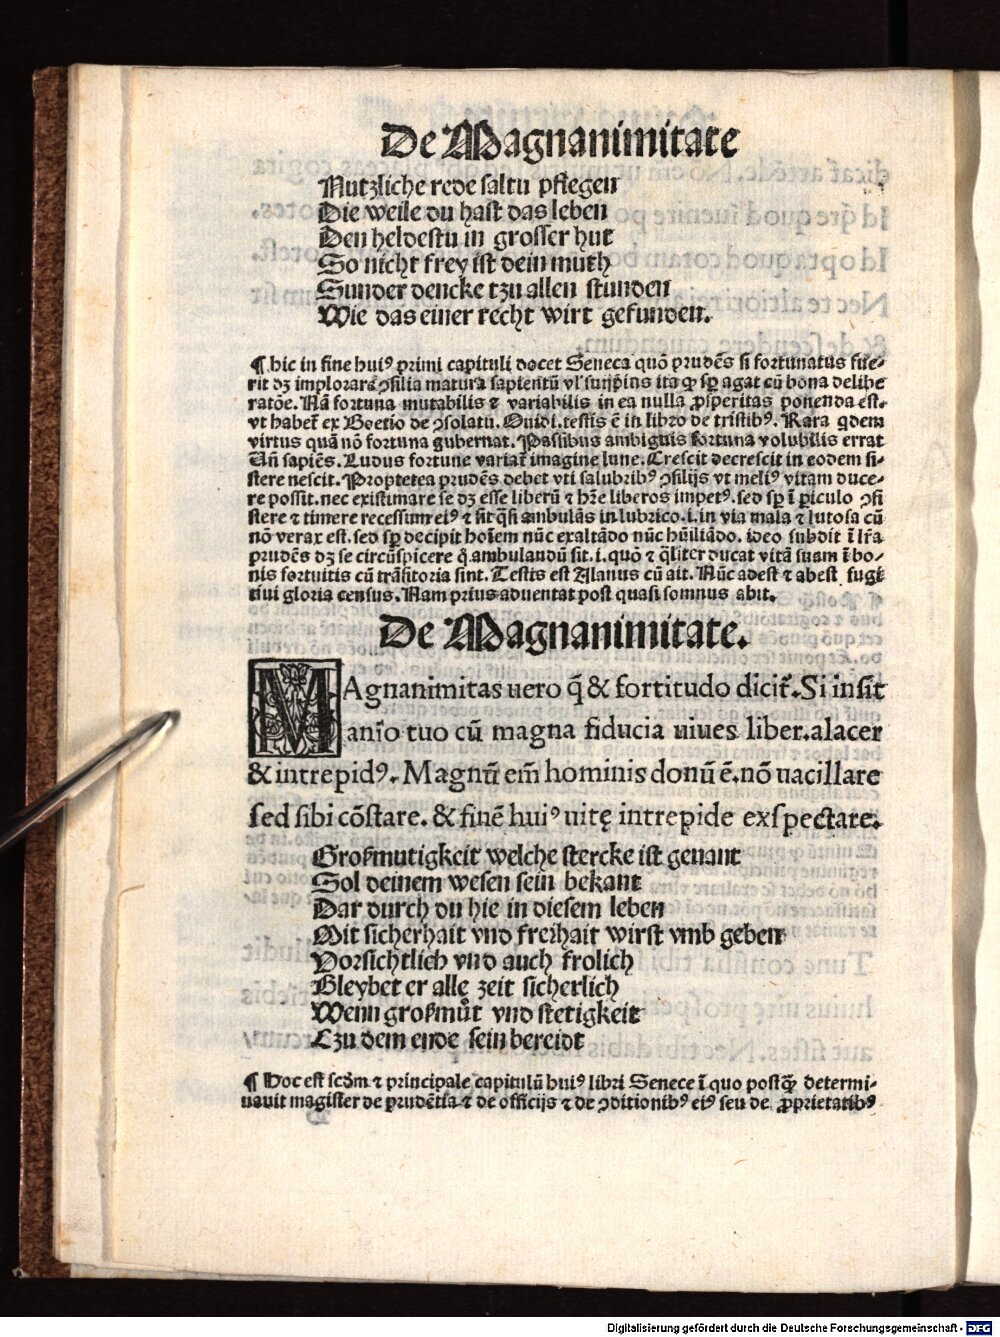 De Magnanimitate
Nutzliche rede saltu pflegen
Die weile du hast das leben
Den heldestu in grosser hut
So nicht frey ist dein muth
Sunder dencke tzu allen stunden
Wie das einer recht wirt gefunden.
¶ hic in fine huiꝰ primi capituli docet Seneca quō prudēs si fortunatus fue-
rit dꝫ implorare ꝯsilia matura sapientū vl' ita ꝙ sꝑ agat cū bona delibe
ratōe. Nā fortuna mutabilis ⁊ variabilis in ea nulla ꝓsperitas ponenda est.
vt habet᷑ ex Boetio de ꝯsolatu. Ouidi. testis ē in libro de tristibꝰ. Rara qdem
virtus quā nō fortuna gubernat. Passibus ambiguis fortuna volubilis errat
Uñ sapiēs. Ludus fortune variat᷑ imagine lune. Crescit decrescit in eodem si-
stere nescit. Proptetea prudēs debet vti salubribꝰ ꝯsilijs vt meliꝰ vitam duce-
re possit. nec existimare se dꝫ esse liberū ⁊ hr̄e liberos impetꝰ. sed sꝑ ī ꝑiculo ꝯsi
stere ⁊ timere recessum eiꝰ ⁊ sit q̄si ambulās in lubrico .i. in via mala ⁊ lutosa cū
nō verax est. sed sꝑ decipit hoīem nūc exaltādo nūc hūiliādo. ideo subdit ī lr̄a
prudēs dꝫ se circūspicere q̄ ambulandū sit .i. quō ⁊ qͥliter ducat vitā suam ī bo-
nis fortuitis cū trāsitoria sint. Testis est Alanus cū ait. Nūc adest ⁊ abest fugi
tiui gloria census. Nam prius aduentat post quasi somnus abit.
De Magnanimitate.
MAgnanimitas uero q̄ & fortitudo dicit᷑. Si insit
anīo tuo cū magna fiducia uiues liber. alacer
& intrepidꝰ. Magnū em̄ hominis donū ē. nō uacillare
sed sibi cōstare. & finē huiꝰ uitę intrepide exspectare.
Großmutigkeit welche stercke ist genant
Sol deinem wesen sein bekant
Dar durch du hie in diesem leben
Mit sicherhait vnd freihait wirst vmb geben
Vorsichtlich vnd auch frolich
Bleybet er alle zeit sicherlich
Wenn großmůt vnd stetigkeit
Czu dem ende sein bereidt
¶ Hoc est scd̄m ⁊ principale capitulū huiꝰ libri Senece ī quo postꝙ̄ determi-
nauit magister de prudētia ⁊ de officijs ⁊ de ꝯditionibꝰ eiꝰ seu de ꝓprietatibꝰ
Digitalisierung gefördert durch die Deutsche Forschungsgemeinschaft - DFG